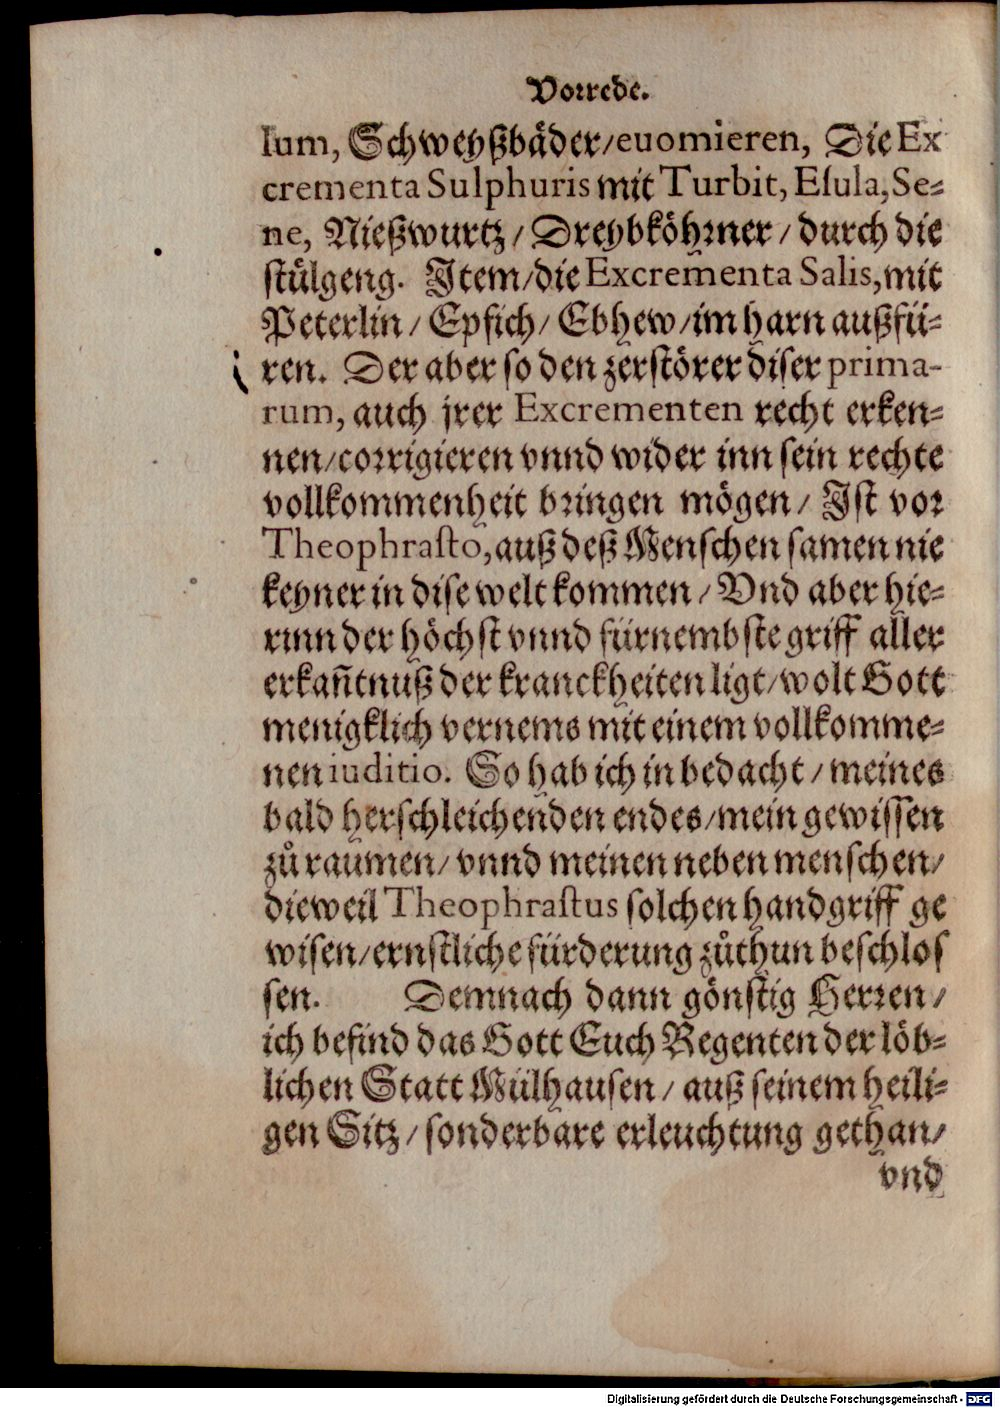 Vorrede.
lum, Schweyßbåder/euomieren, Die Ex
crementa Sulphuris mit Turbit, Eſula, Se-
ne, Nießwurtz/ Dreybköhrner/ durch die
stůlgeng. Jtem/die Excrementa Salis, mit
Peterlin/ Epfich/ Ebhew/im harn außfü-
ren. Der aber so den zerstörer diser prima-
rum, auch jrer Excrementen recht erken-
nen/corrigieren vnnd wider inn sein rechte
vollkommenheit bringen mögen/ Jst vor
Theophraſto, auß deß Menschen samen nie
keyner in dise welt kommen/ Vnd aber hie-
rinn der höchst vnnd fürnembste griff aller
erkañtnuß der kranckheiten ligt/wolt Gott
menigklich vernems mit einem vollkomme-
nen iuditio. So hab ich in bedacht/ meines
bald herschleichenden endes/mein gewissen
zů raumen/ vnnd meinen neben menschen/
dieweil Theophraſtus solchen handgriff ge
wisen/ernstliche fürderung zůthun beschlos
sen. Demnach dann gönstig Herren/
ich befind das Gott Euch Regenten der löb-
lichen Statt Mülhausen/ auß seinem heili-
gen Sitz/ sonderbare erleuchtung gethan/
vnd
Digitalisierung gefördert durch die Deutsche Forschungsgemeinschaft - DFG